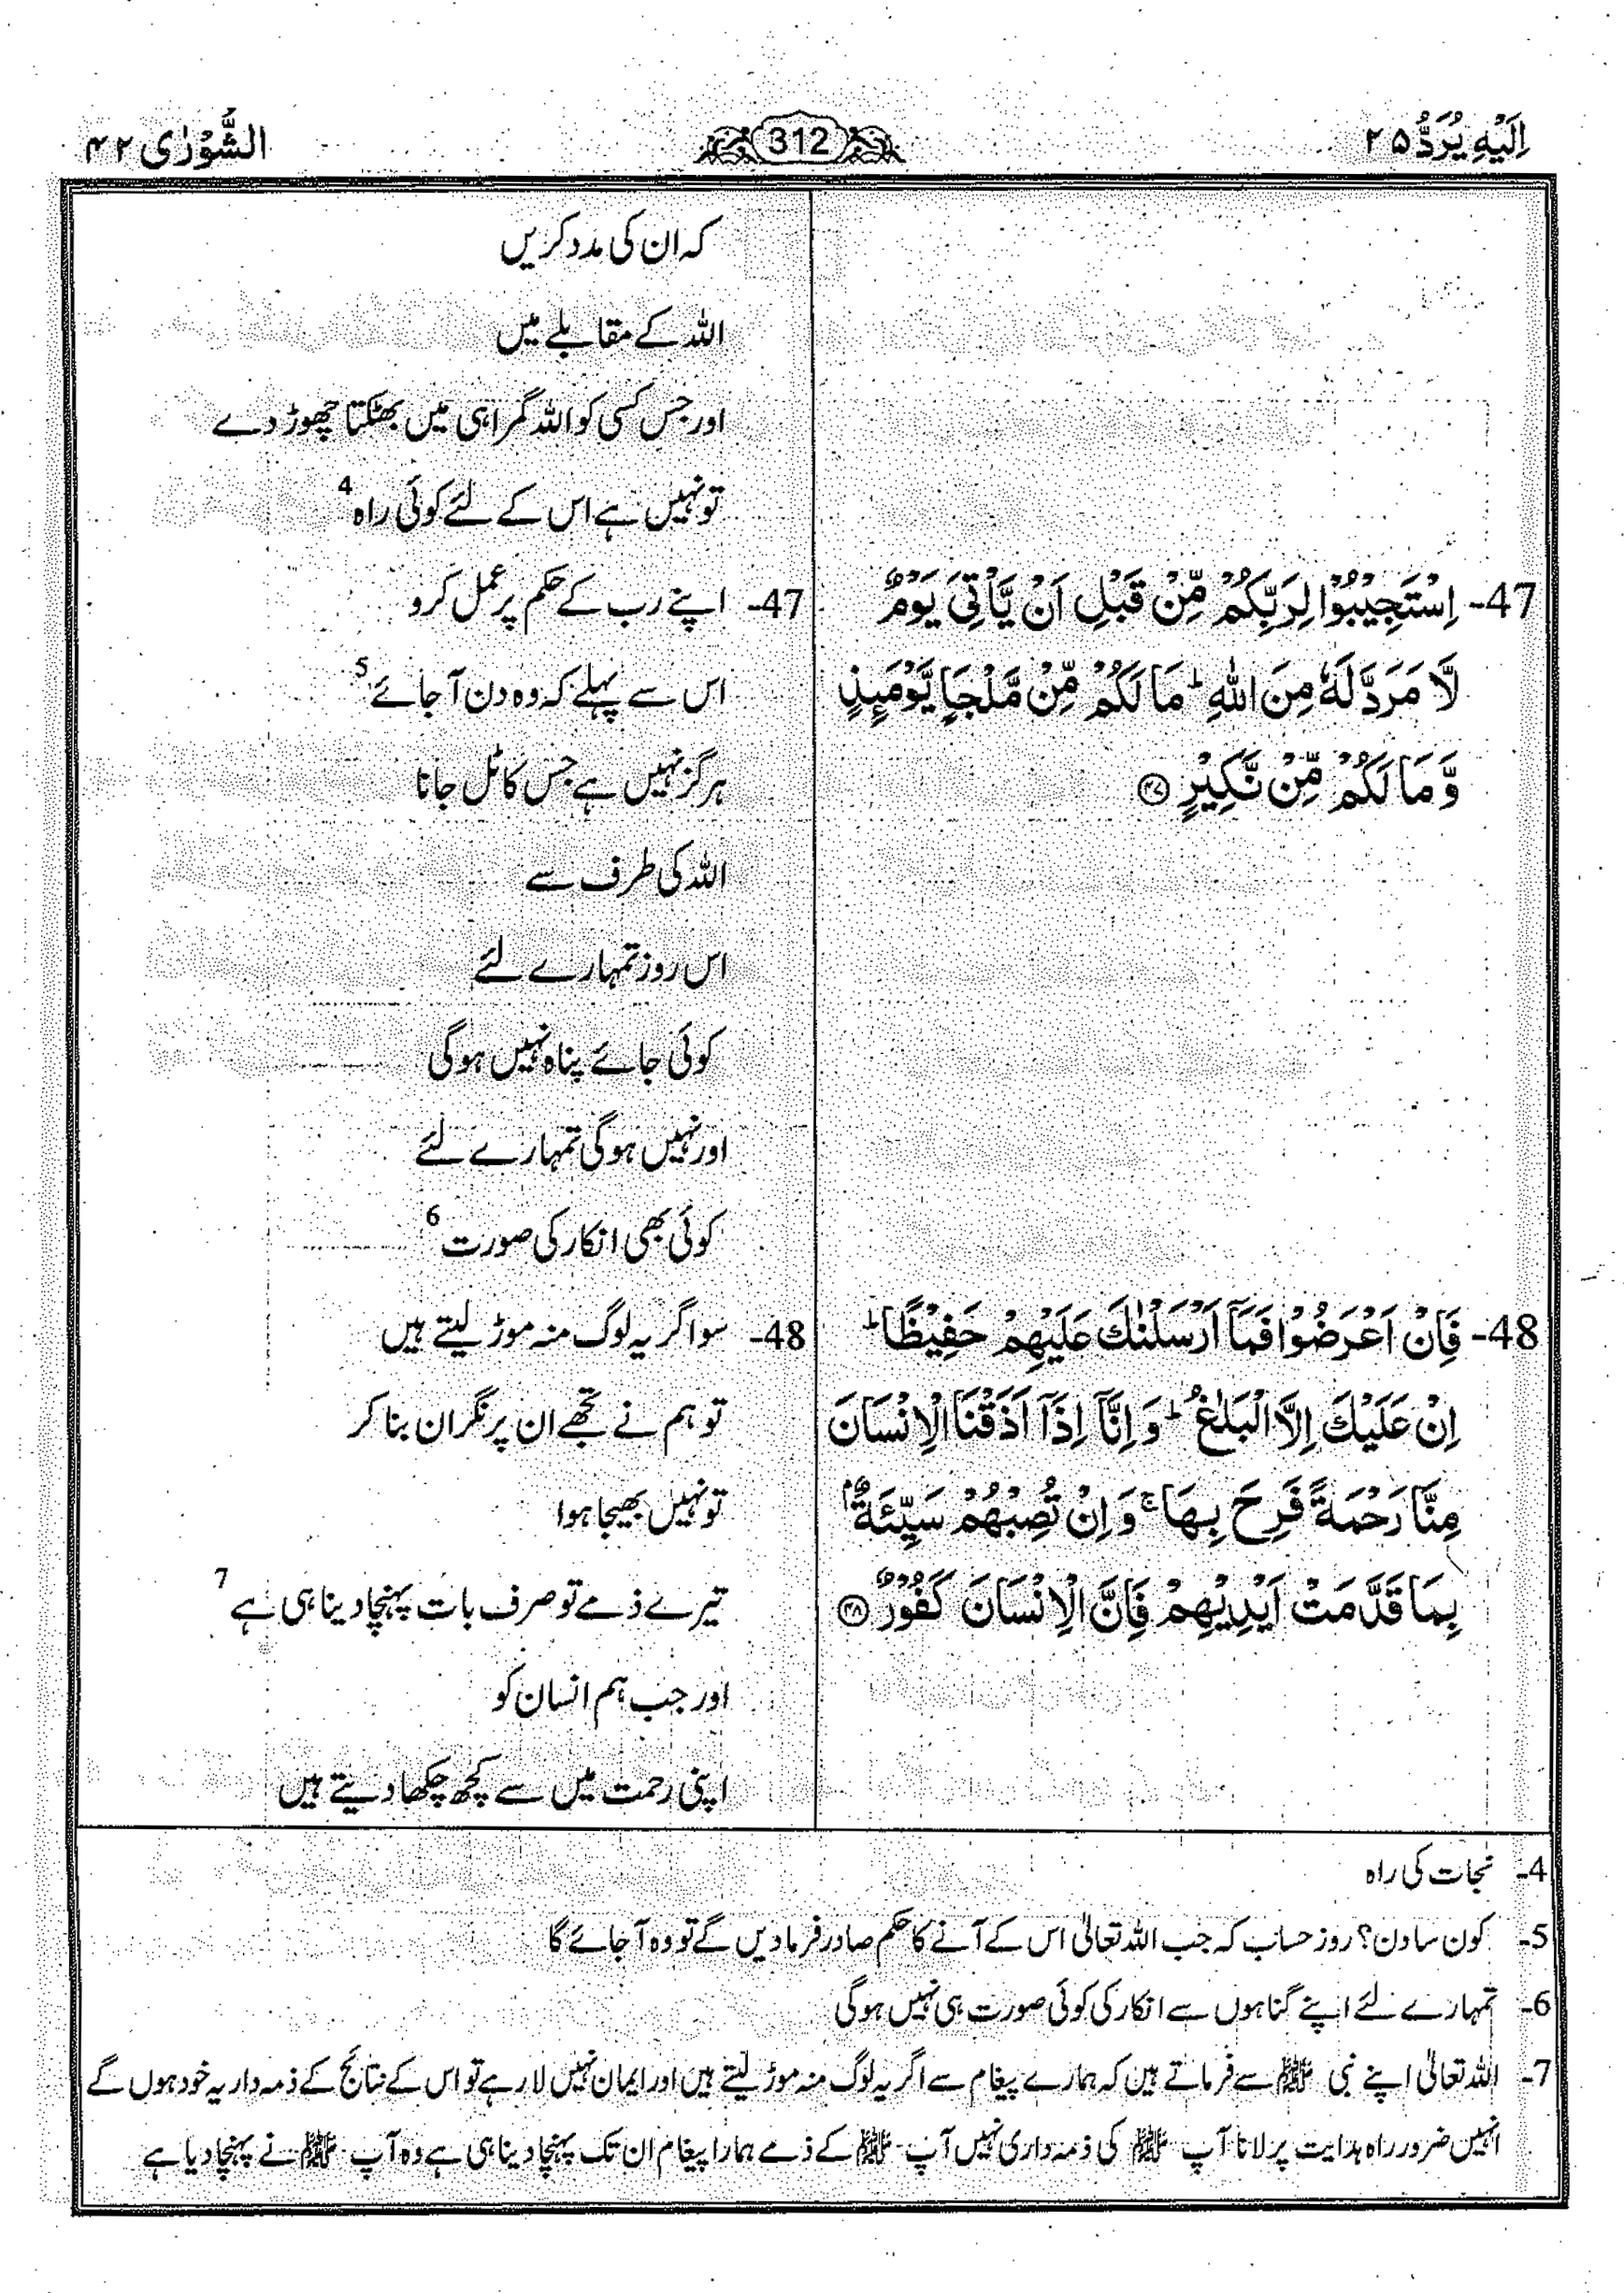 اِلَيْهِ يُرَدُّ ۲۵
312
الشُّوْرٰى ۴۲
کہ ان کی مدد کریں
اللہ کے مقابلے میں
اور جس کسی کو اللہ گمراہی میں بھٹکتا چھوڑ دے
تو نہیں ہے اس کے لئے کوئی راہ 4
47- اِسْتَجِيْبُوْا لِرَبِّكُمْ مِّنْ قَبْلِ اَنْ يَّاْتِيَ يَوْمٌ
لَّا مَرَدَّ لَهٗ مِنَ اللّٰهِ ؕ مَا لَكُمْ مِّنْ مَّلْجَاٍ يَّوْمَىِٕذٍ
وَّمَا لَكُمْ مِّنْ نَّكِيْرٍ ۴۷
47- اپنے رب کے حکم پر عمل کرو
اس سے پہلے کہ وہ دن آ جائے 5
ہرگز نہیں ہے جس کا ٹل جانا
اللہ کی طرف سے
اس روز تمہارے لئے
کوئی جائے پناہ نہیں ہوگی
اور نہیں ہوگی تمہارے لئے
کوئی بھی انکار کی صورت 6
48- فَاِنْ اَعْرَضُوْا فَمَاۤ اَرْسَلْنٰكَ عَلَيْهِمْ حَفِيْظًا ؕ
اِنْ عَلَيْكَ اِلَّا الْبَلٰغُ ؕ وَ اِنَّاۤ اِذَاۤ اَذَقْنَا الْاِنْسَانَ
مِنَّا رَحْمَةً فَرِحَ بِهَا ۚ وَ اِنْ تُصِبْهُمْ سَيِّئَةٌۢ
بِمَا قَدَّمَتْ اَيْدِيْهِمْ فَاِنَّ الْاِنْسَانَ كَفُوْرٌ ۴۸
48- سو اگر یہ لوگ منہ موڑ لیتے ہیں
تو ہم نے تجھے ان پر نگران بنا کر
تو نہیں بھیجا ہوا
تیرے ذمے تو صرف بات پہنچا دینا ہی ہے 7
اور جب ہم انسان کو
اپنی رحمت میں سے کچھ چکھا دیتے ہیں
4- نجات کی راہ
5- کون سا دن؟ روز حساب کہ جب اللہ تعالیٰ اس کے آنے کا حکم صادر فرما دیں گے تو وہ آ جائے گا
6- تمہارے لئے اپنے گناہوں سے انکار کی کوئی صورت ہی نہیں ہوگی
7- اللہ تعالیٰ اپنے نبی ﷺ سے فرماتے ہیں کہ ہمارے پیغام سے اگر یہ لوگ منہ موڑ لیتے ہیں اور ایمان نہیں لا رہے تو اس کے نتائج کے ذمہ دار یہ خود ہوں گے
انہیں ضرور راہ ہدایت پر لانا آپ ﷺ کی ذمہ داری نہیں آپ ﷺ کے ذمے ہمارا پیغام ان تک پہنچا دینا ہی ہے وہ آپ ﷺ نے پہنچا دیا ہے